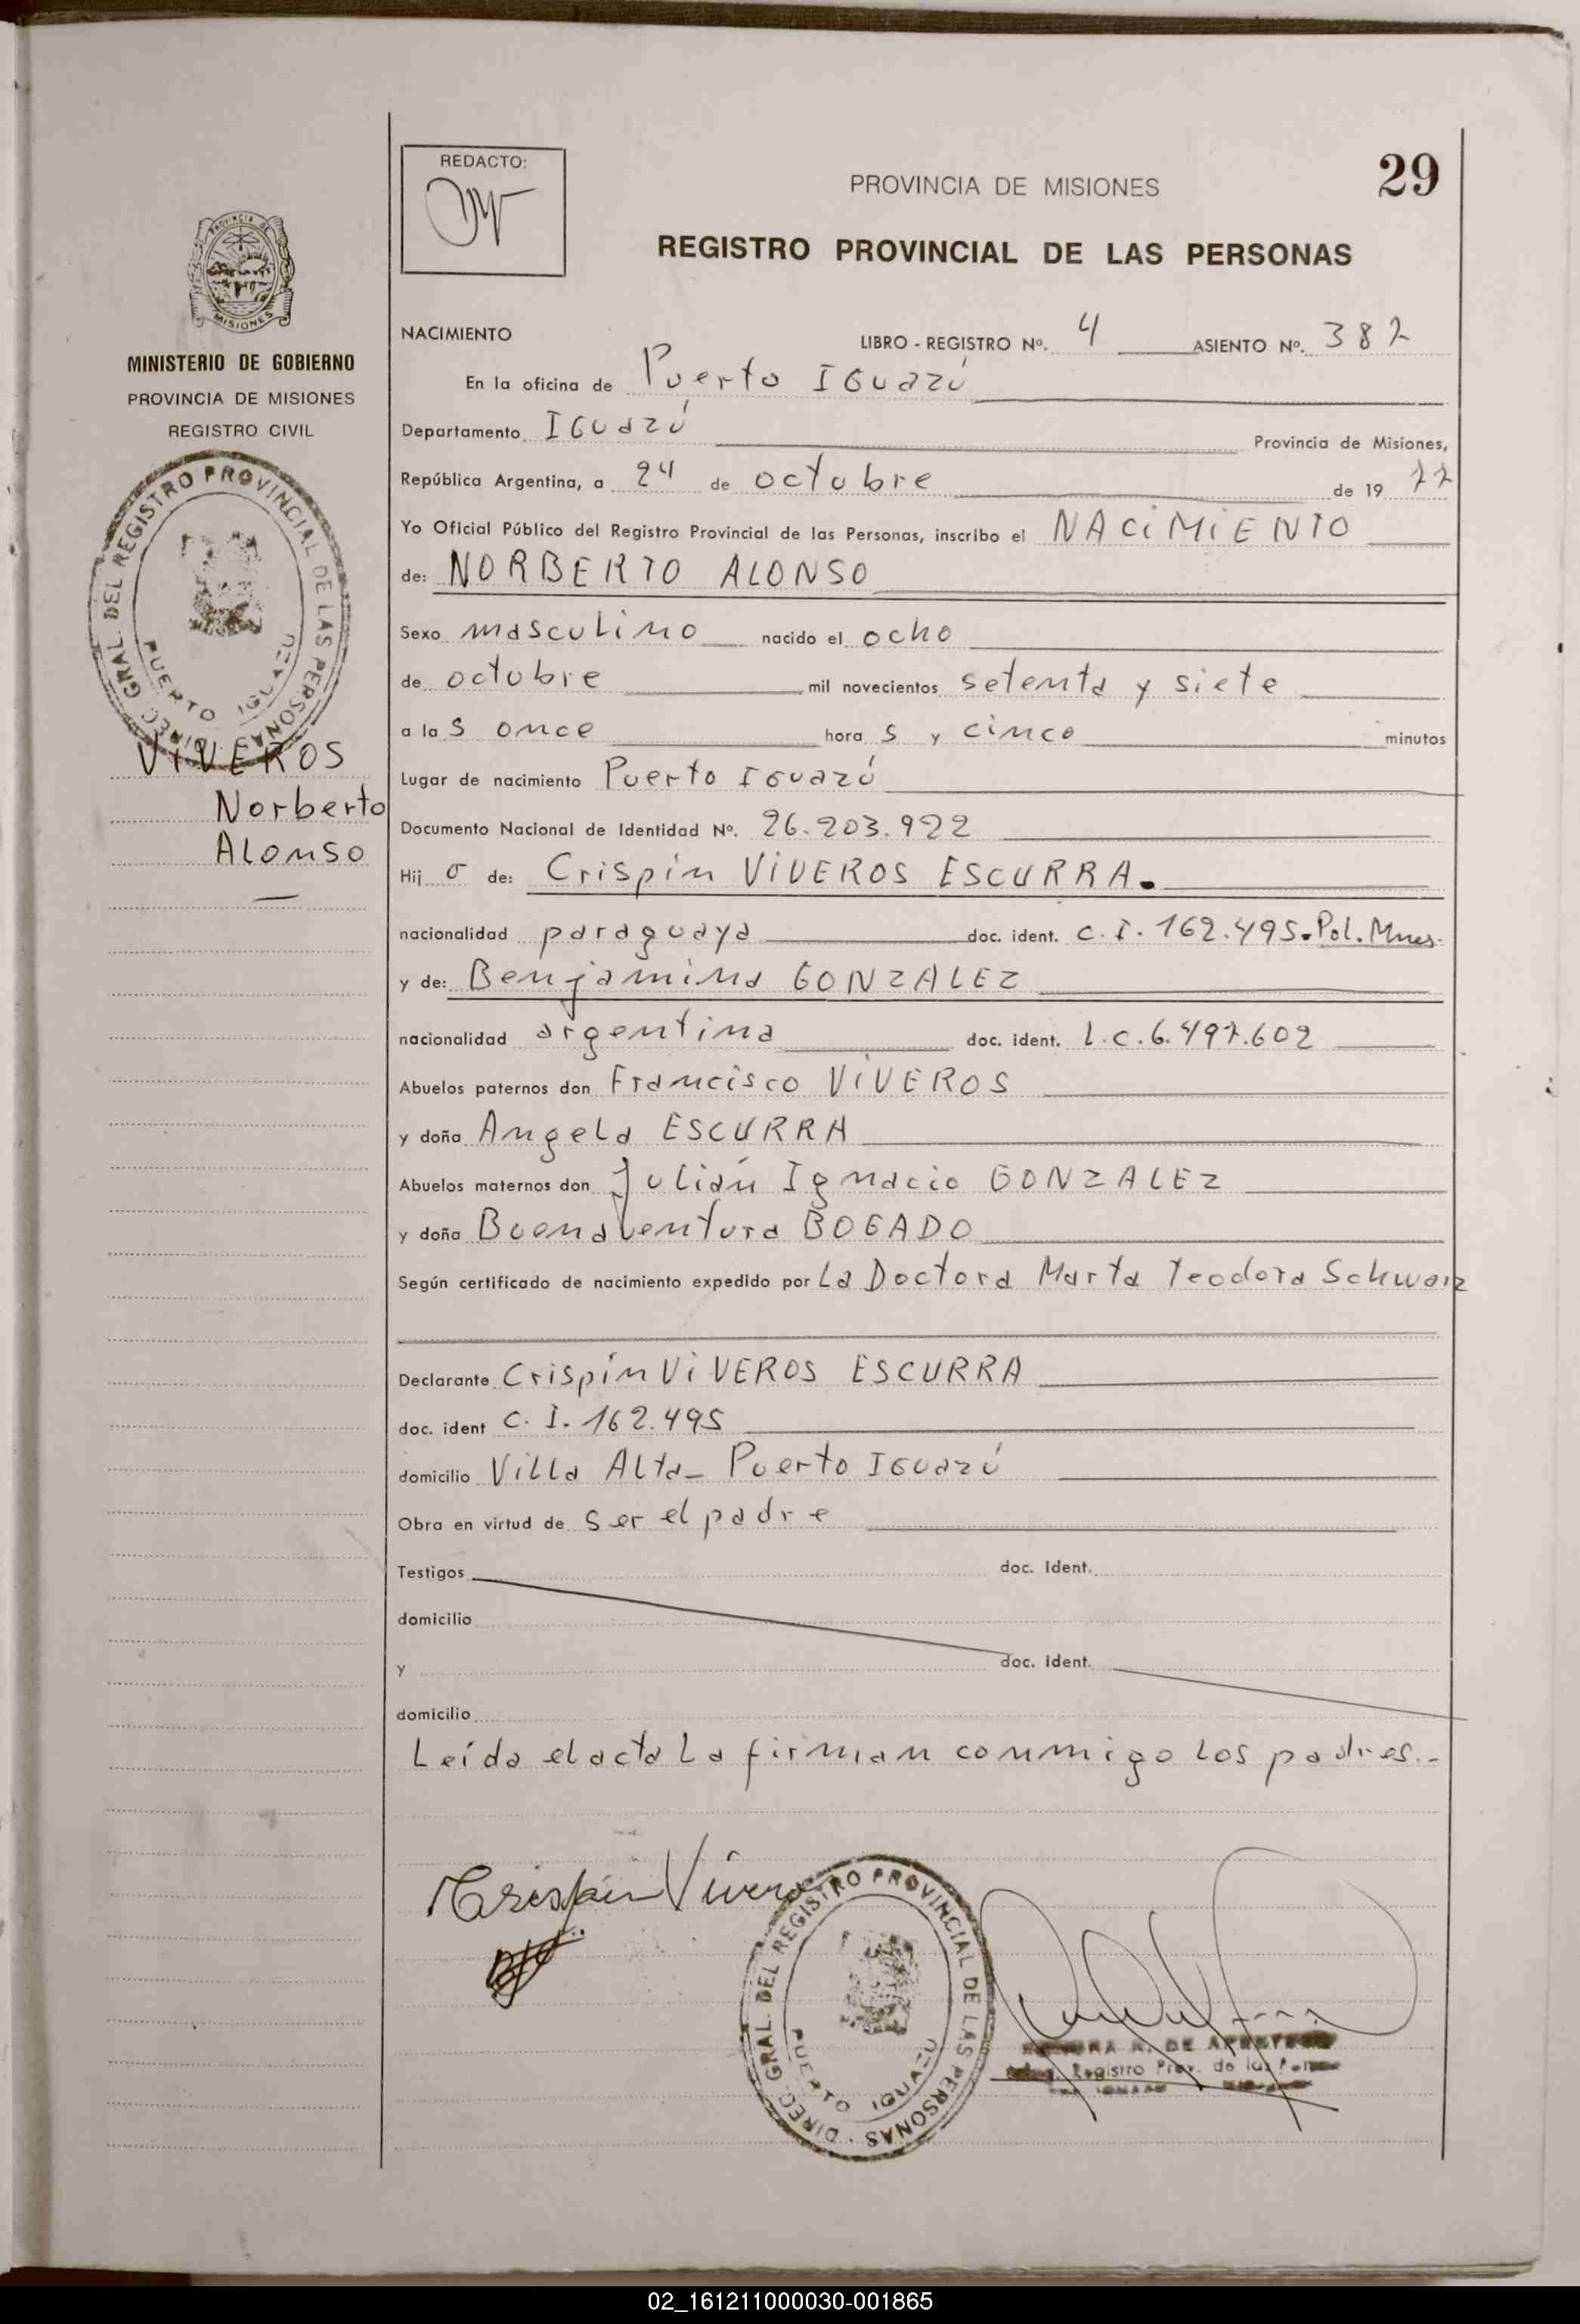 REDACTO:
PROVINCIA DE MISIONES
29
REGISTRO PROVINCIAL DE LAS PERSONAS
PROVINCIA DE
MISIONES
MINISTERIO DE GOBIERNO
PROVINCIA DE MISIONES
REGISTRO CIVIL
DIREC. GRAL. DEL REGISTRO PROVINCIAL DE LAS PERSONAS
PUERTO IGUAZU
VIVEROS
Norberto
Alonso
NACIMIENTO LIBRO - REGISTRO Nº. 4 ASIENTO Nº. 382
En la oficina de Puerto Iguazú
Departamento Iguazú Provincia de Misiones,
República Argentina, a 24 de octubre de 19 77
Yo Oficial Público del Registro Provincial de las Personas, inscribo el NACIMIENTO
de: NORBERTO ALONSO
Sexo masculino nacido el ocho
de octubre mil novecientos setenta y siete
a las once horas y cinco minutos
Lugar de nacimiento Puerto Iguazú
Documento Nacional de Identidad Nº. 26.203.922
Hijo de: Crispín VIVEROS ESCURRA.
nacionalidad paraguaya doc. ident. C.I. 162.495. Pol. Mnes.
y de: Benjamina GONZALEZ
nacionalidad argentina doc. ident. L.C. 6.497.602
Abuelos paternos don Francisco VIVEROS
y doña Angela ESCURRA
Abuelos maternos don Julián Ignacio GONZALEZ
y doña Buenaventura BOGADO
Según certificado de nacimiento expedido por La Doctora Marta Teodora Schwarz
Declarante Crispín VIVEROS ESCURRA
doc. ident C.I. 162.495
domicilio Villa Alta - Puerto Iguazú
Obra en virtud de ser el padre
Testigos doc. ident.
domicilio
y doc. ident.
domicilio
Leída el acta la firman conmigo los padres.-
Crispin Vivero
DIREC. GRAL. DEL REGISTRO PROVINCIAL DE LAS PERSONAS
PUERTO IGUAZU
DE
Registro Prov. de las
02_161211000030-001865